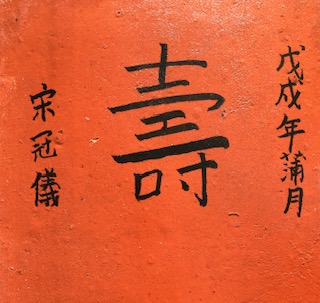 戊戌年蒲月
壽
宋冠儀